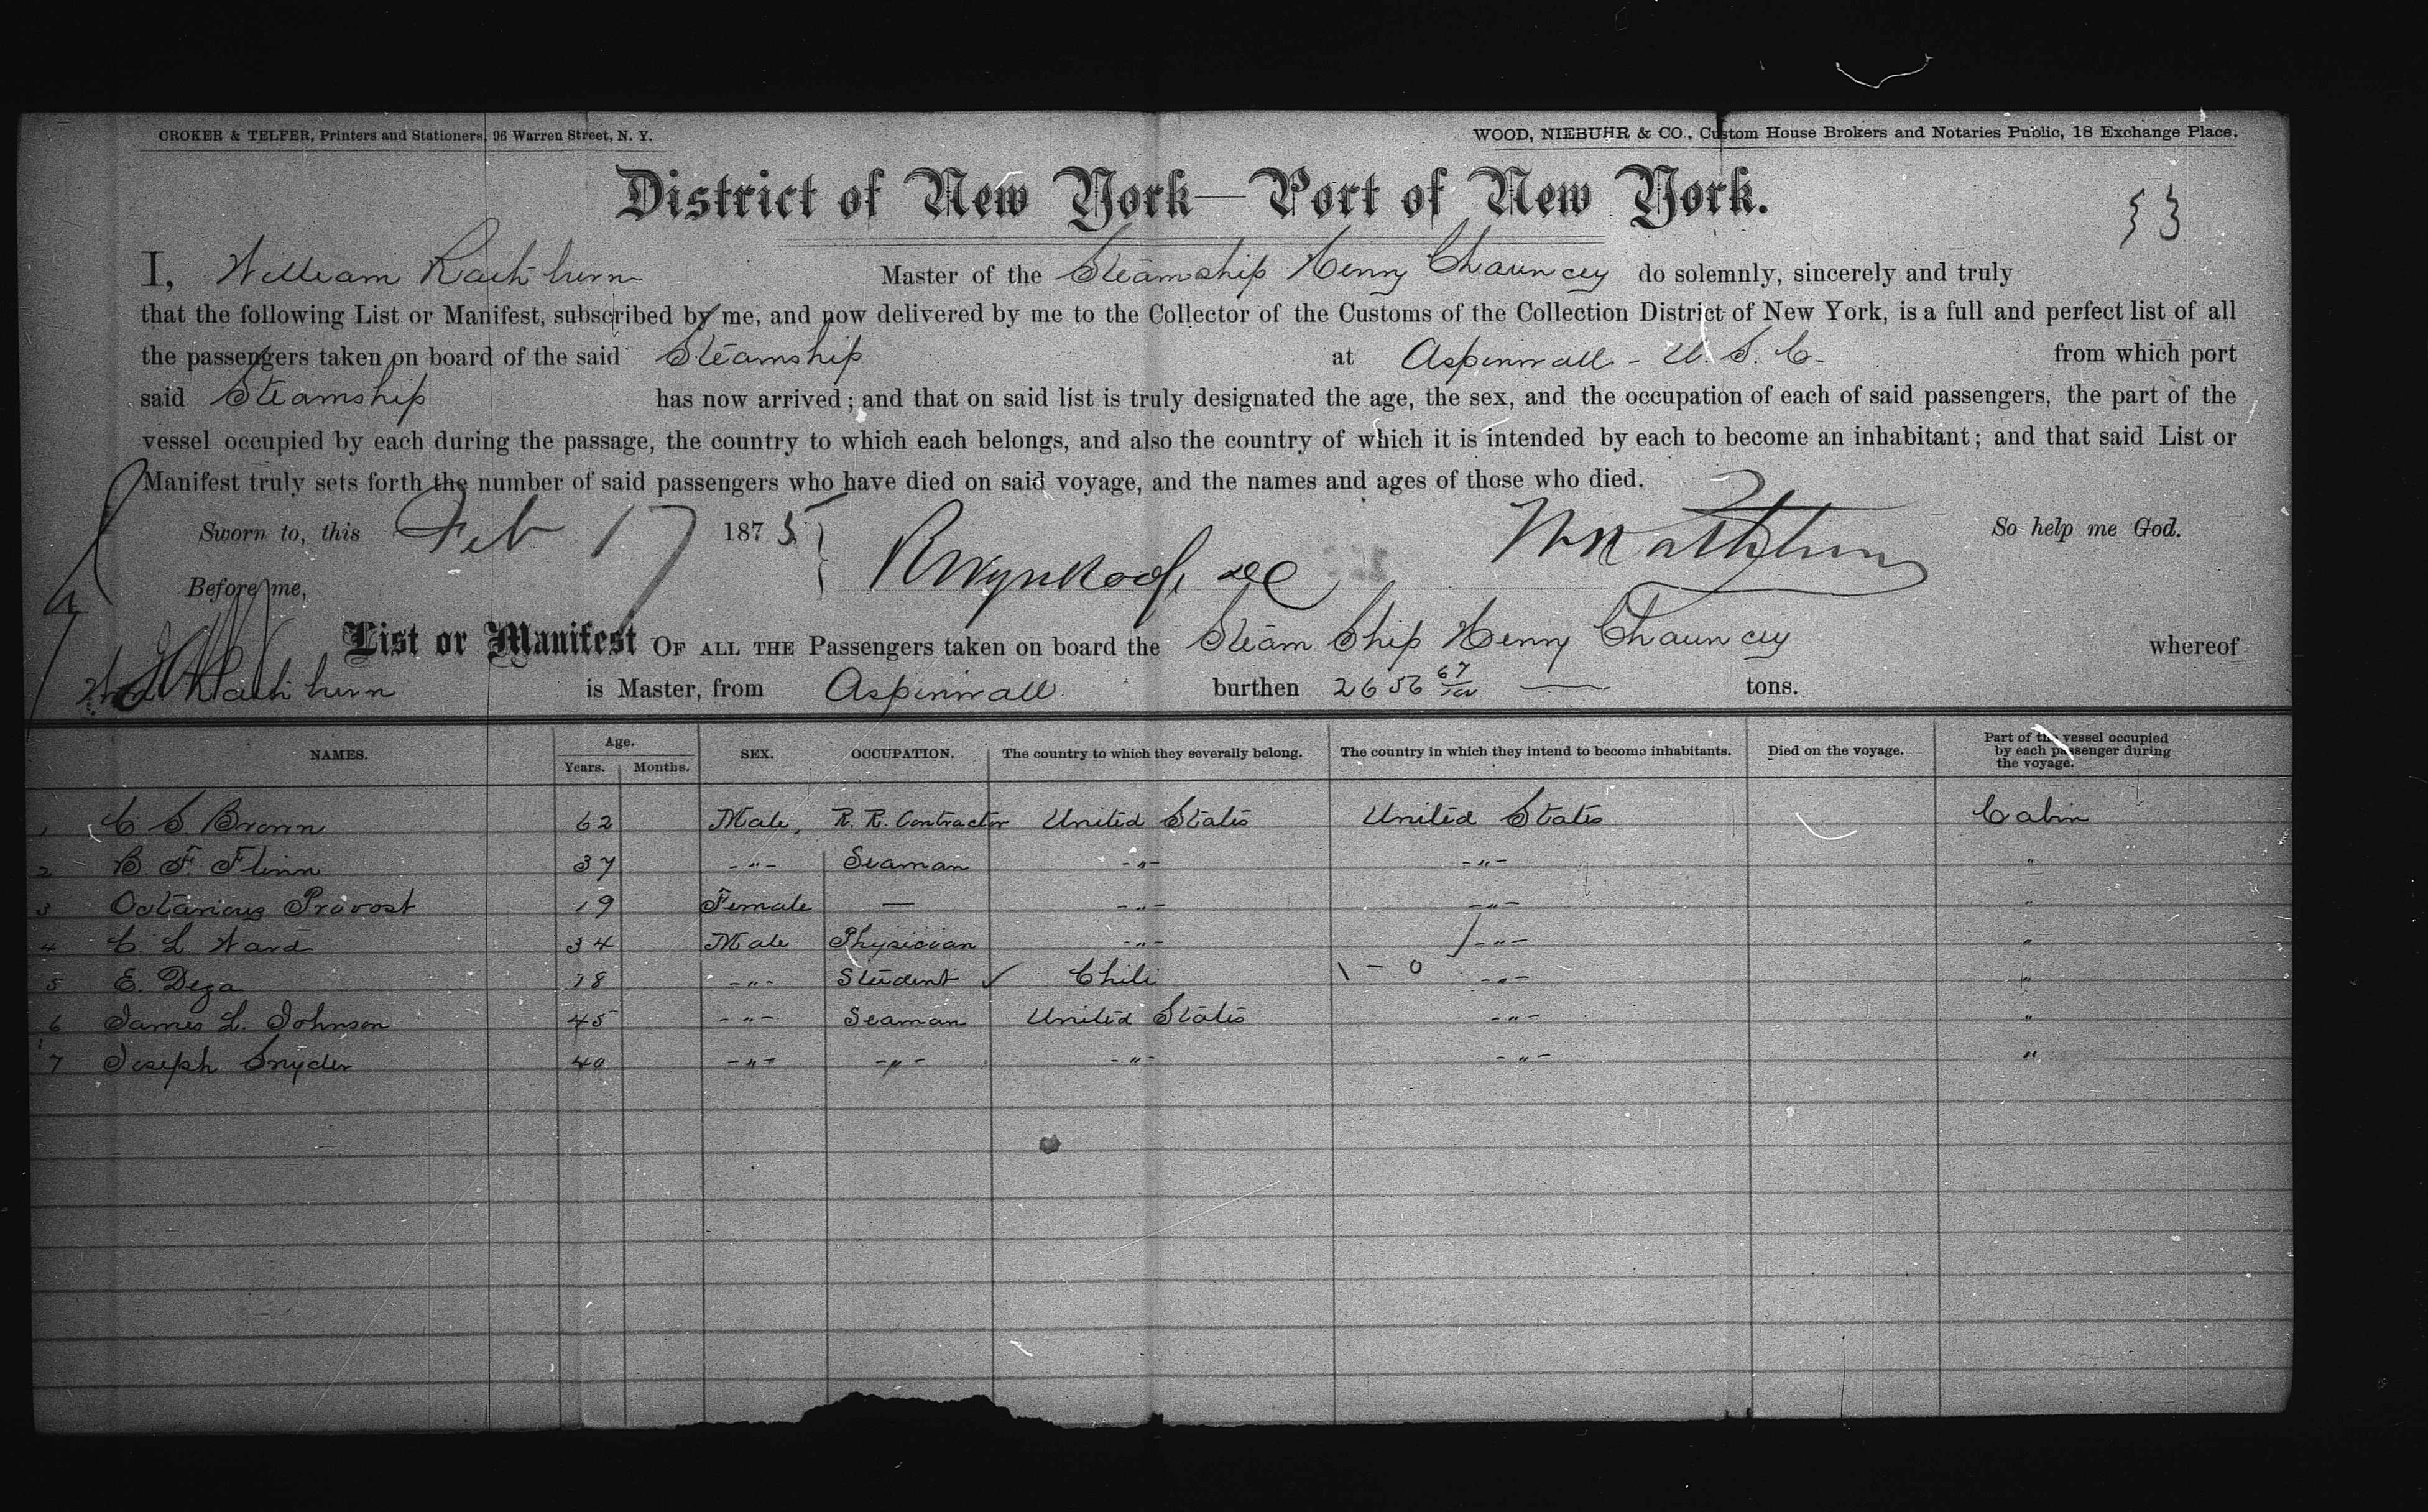 CROKER & TELFER, Printers and Stationers, 96 Warren Street, N. Y. WOOD, NIEBUHR & CO., Custom House Brokers and Notaries Public, 18 Exchange Place.
District of New York—Port of New York.
53
I, William Rathburn Master of the Steamship Henry Chauncey do solemnly, sincerely and truly
that the following List or Manifest, subscribed by me, and now delivered by me to the Collector of the Customs of the Collection District of New York, is a full and perfect list of all
the passengers taken on board of the said Steamship at Aspinwall - U. S. C. from which port
said Steamship has now arrived; and that on said list is truly designated the age, the sex, and the occupation of each of said passengers, the part of the
vessel occupied by each during the passage, the country to which each belongs, and also the country of which it is intended by each to become an inhabitant; and that said List or
Manifest truly sets forth the number of said passengers who have died on said voyage, and the names and ages of those who died.
Sworn to, this Feb 17 1875 } W Rathburn So help me God.
Before me,
List or Manifest OF ALL THE Passengers taken on board the Steam Ship Henry Chauncey whereof
Rathburn is Master, from Aspinwall burthen 2656 67/100 tons.
NAMES. Age. Years. Months. SEX. OCCUPATION. The country to which they severally belong. The country in which they intend to become inhabitants. Died on the voyage. Part of the vessel occupied by each passenger during the voyage.
1 C S Brown 62 Male, R. R. Contractor United States United States Cabin
2 B. F. Flinn 37 -"- Seaman -"- -"- "
3 Octavious Provost 19 Female — -"- -"- "
4 C. L Ward 34 Male Physician -"- -"- "
5 E. Dega 18 -"- Student ✓ Chili \ - 0 -"- "
6 James L. Johnson 45 -"- Seaman United States -"- "
7 Joseph Snyder 40 -"- -"- -"- -"- "